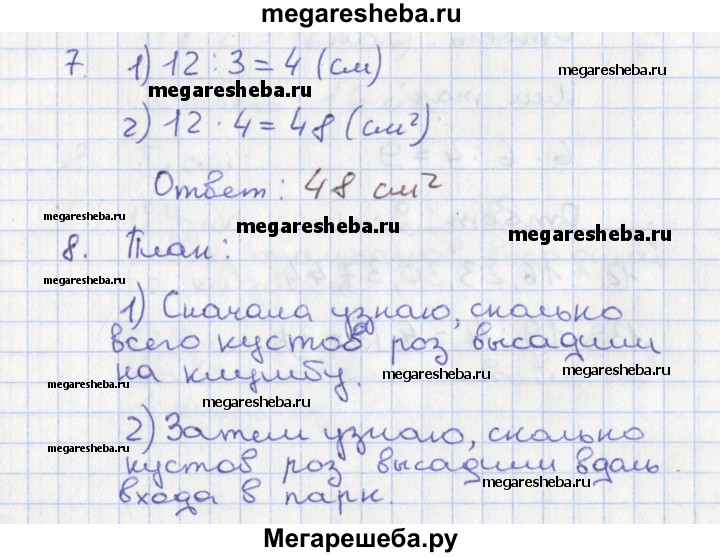 megaresheba.ru
7. 1) 12 : 3 = 4 (см)
megaresheba.ru
megaresheba.ru
2) 12 · 4 = 48 (см²)
Ответ: 48 см²
megaresheba.ru
megaresheba.ru
megaresheba.ru
8. План:
1) Сначала узнаю, сколько
всего кустов роз высадили
на клумбу.
megaresheba.ru
megaresheba.ru
2) Затем узнаю, сколько
megaresheba.ru
кустов роз высадили вдоль
megaresheba.ru
входа в парк.
Мегарешеба.ру